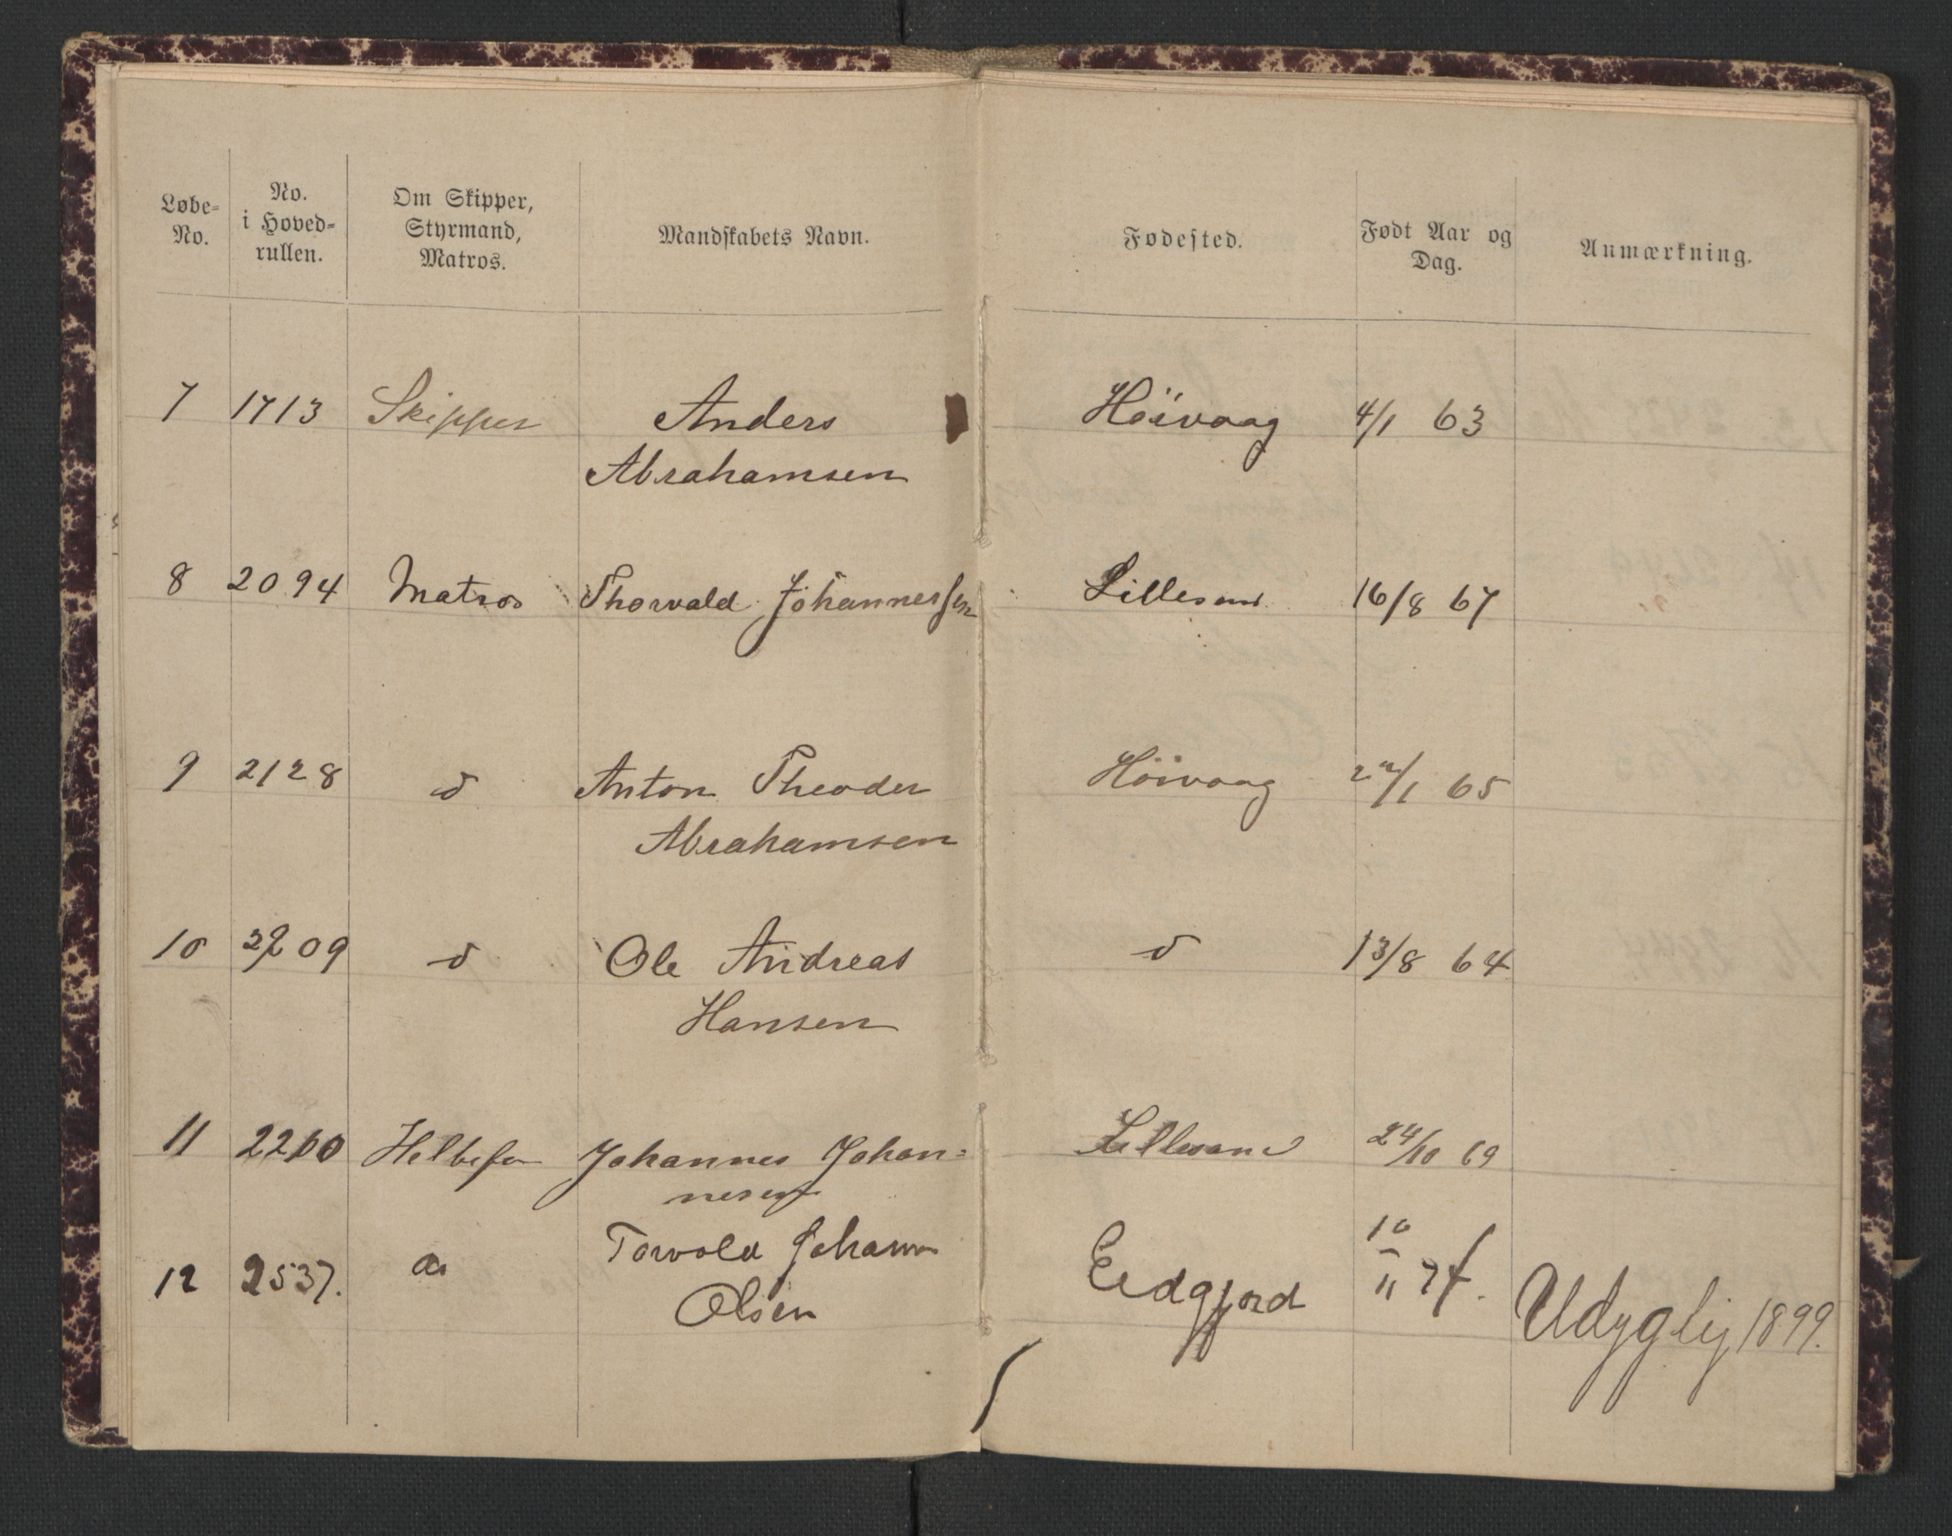 Løbe-
No.
No.
i Hoved-
rullen.
Om Skipper,
Styrmand,
Matros.
Mandskabets Navn.
Fødested.
Født Aar og
Dag.
Anmærkning.
7 1713 Skipper Anders Høivaag 4/1 63
Abrahamsen
8 2094 Matros Thorvald Johannessen Lillesand 16/8 67
9 2128 d Anton Theodor Høivaag /1 65
Abrahamsen
10 2209 d Ole Andreas d 13/8 64
Hansen
11 2260 Johannes Johan= Lillesand 24/10 69
nesen
12 2537. do Torvald Johann Eidgjord 10/11 74. 1899.
Olsen